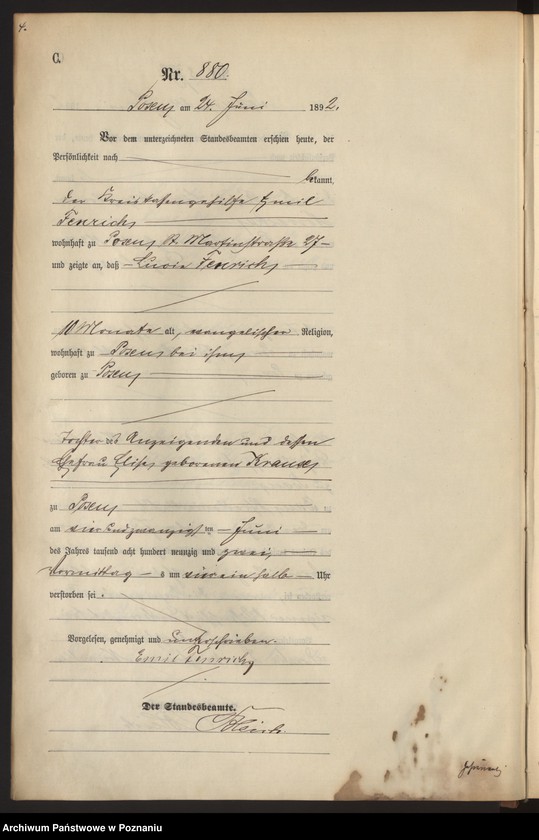 4.
C.
Nr. 880.
Posen am 24. Juni 1892.
Vor dem unterzeichneten Standesbeamten erschien heute, der
Persönlichkeit nach
bekannt,
der Kreiskassengehilfe Emil
Fenrich
wohnhaft zu Posen St. Martinstraße 27
und zeigte an, daß Lucie Fenrich
10 Monate alt, evangelischer Religion,
wohnhaft zu Posen bei ihm
geboren zu Posen
Tochter des Anzeigenden und dessen
Ehefrau Elise geborenen
zu Posen
am vier und zwanzigsten Juni
des Jahres tausend acht hundert neunzig und zwei,
Vormittags um vier ein halb Uhr
verstorben sei.
Vorgelesen, genehmigt und unterschrieben.
Emil Fenrich
Der Standesbeamte.
Archiwum Państwowe w Poznaniu